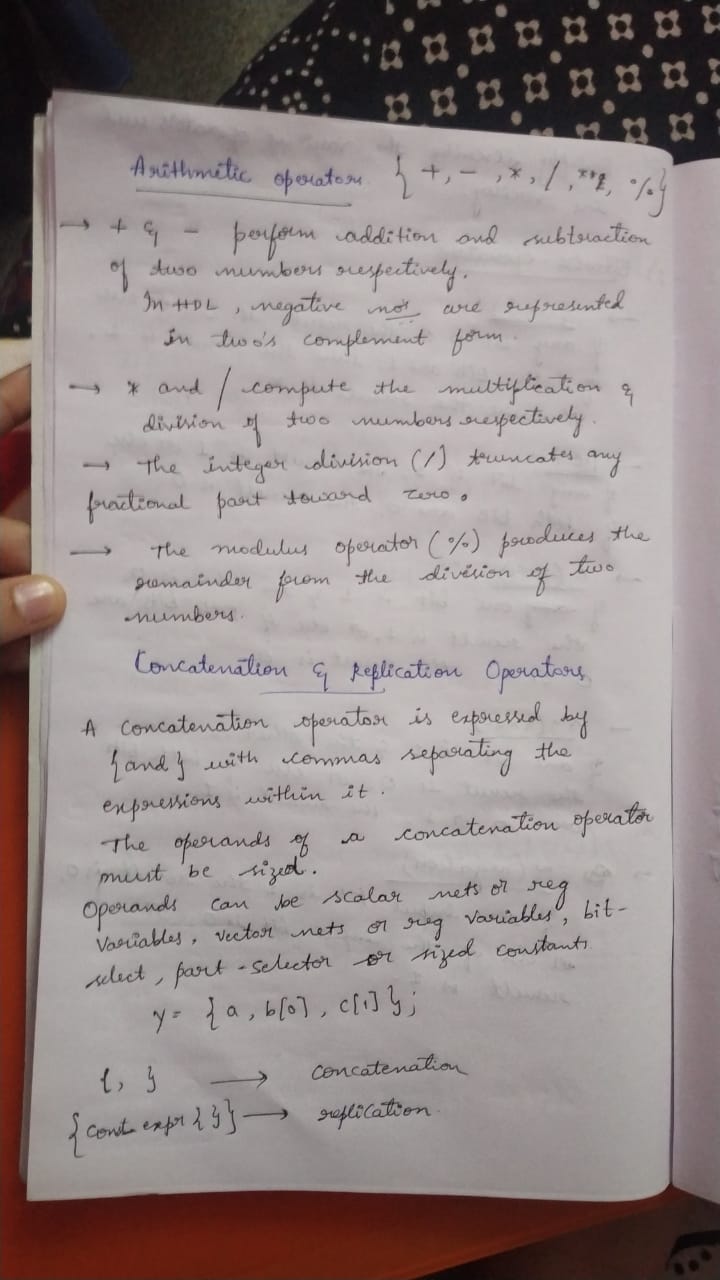 Arithmetic operators { +, - , *, / , **, %}
→ + & - perform addition and subtraction
of two numbers respectively.
In HDL, negative nos are represented
in two's complement form.
→ * and / compute the multiplication &
division of two numbers respectively.
→ The integer division (/) truncates any
fractional part toward zero.
→ The modulus operator (%) produces the
remainder from the division of two
numbers.
Concatenation & Replication Operators
A concatenation operator is expressed by
{and} with commas separating the
expressions within it.
The operands of a concatenation operator
must be sized.
Operands can be scalar nets or reg
Variables, vector nets or reg variables, bit-
select, part-selector or sized constants.
y = {a, b[0], c[1]};
{, } → concatenation
{const expr { }} → replication.